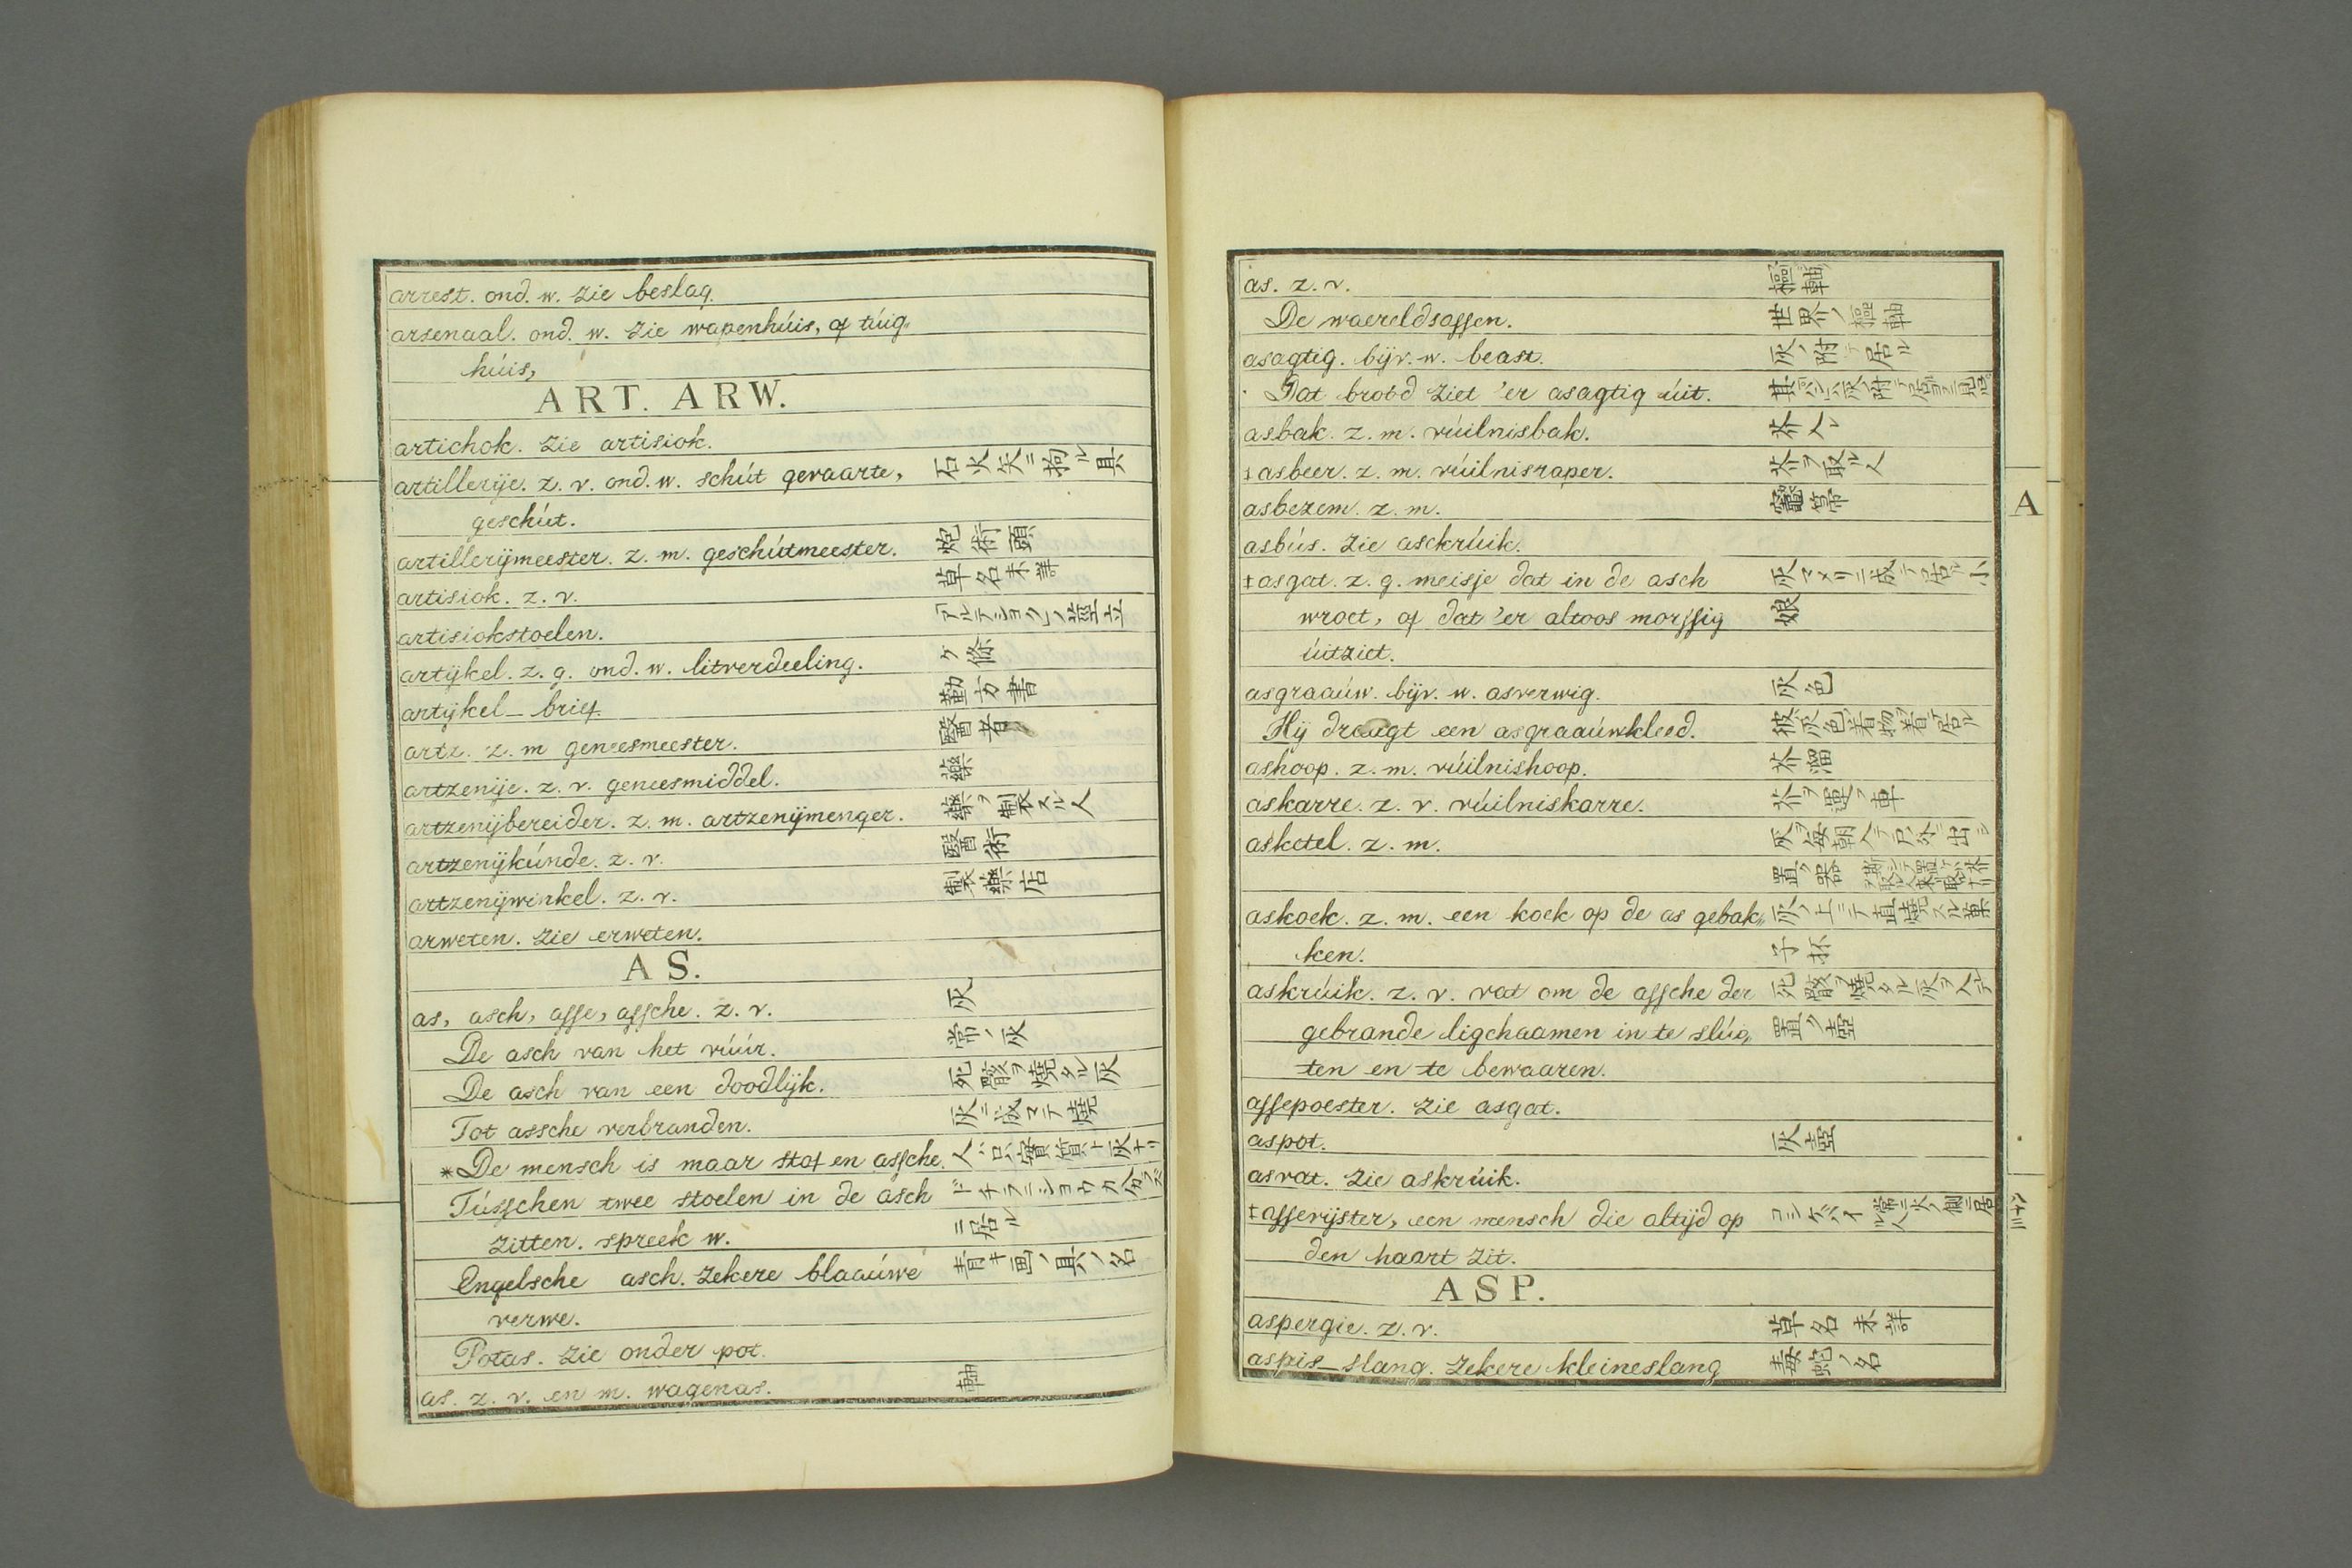 arrest. ond. w. zie beslag.
arsenaal. ond. w. zie wapenhúis, of túig„
húis,
ART. ARW.
artichok. zie artisiok.
artillerije. z. v. ond. w. schút gevaarte, 石火矢ニ拘ル具
geschút.
artillerijmeester. z. m. geschútmeester. 炮術頭
artisiok. z. v. 草名未詳
artisiokstoelen. アルテショクノ莖立
artijkel. z. g. ond. w. litverdeeling. ケ條
artijkel_brief. 勤方書
artz. z. m geneesmeester. 醫者
artzenije. z. v. geneesmiddel. 藥
artzenijbereider. z. m. artzenijmenger. 藥ヲ製スル人
artzenijkúnde. z. v. 醫術
artzenijwinkel. z. v. 製藥店
arweten. zie erweten.
AS.
as, asch, asse, assche. z. v. 灰
De asch van het vúúr. 常ノ灰
De asch van een doodlijk. 死骸ヲ燒タル灰
Tot assche verbranden. 灰ニ成マテ燒
*De mensch is maar stof en assche. 人ハ只塵質ト灰ナリ
Tússchen twee stoelen in de asch ドチラニショウカ
zitten. spreek w. ニ居ル
Engelsche asch. zekere blaaúwe 青キ画ノ具ノ名
verwe.
Potas. zie onder pot.
as. z. v. en m. wagenas. 軸
as. z. v. 樞軸
De waereldsassen. 世界ノ樞軸
asagtig. bijv. w. beast. 灰ノ附テ居ル
Dat brood ziet 'er asagtig úit.
asbak. z. m. vúilnisbak. 芥入レ
‡asbeer. z. m. vúilnisraper. 芥ヲ取ル人
asbezem. z. m. 竈箒
asbús. zie asckrúik.
‡asgat. z. g. meisje dat in de asch 灰マメリニ成テ居ル小
wroet, of dat 'er altoos morssig 娘
úitziet.
asgraaúw. bijv. w. asverwig. 灰色
Hij draagt een asgraaúwkleed. 彼灰色ノ着物ヲ着テ居ル
ashoop. z. m. vúilnishoop. 芥溜
askarre. z. v. vúilniskarre. 芥ヲ運フ車
asketel. z. m. 灰ヲ毎朝入テ戸外ニ出シ
置ク器
askoek. z. m. een koek op de as gebak„ 灰ノ上ニテ直燒スル菓
ken. 子
askrúik. z. v. vat om de assche der 死骸ヲ燒タル灰ヲ入テ
gebrande ligchaamen in te slúig„ 置ク壺
ten en te bewaaren.
assepoester. zie asgat.
aspot. 灰壺
asvat. zie askrúik.
‡assevijster, een mensch die altijd op
den haart zit.
ASP.
aspergie. z. v. 草名未詳
aspis_slang. zekere kleineslang 毒蛇ノ名
A